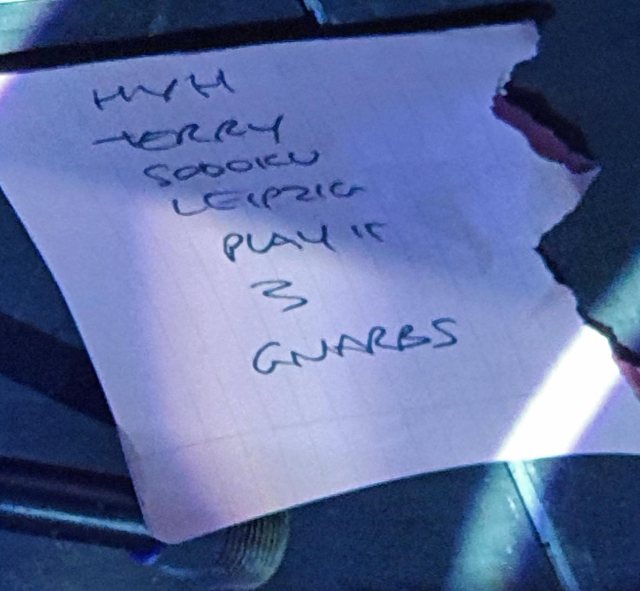 HYH
TERRY
SODOKU
LEIPZIG
PLAY IT
3
GNARBS